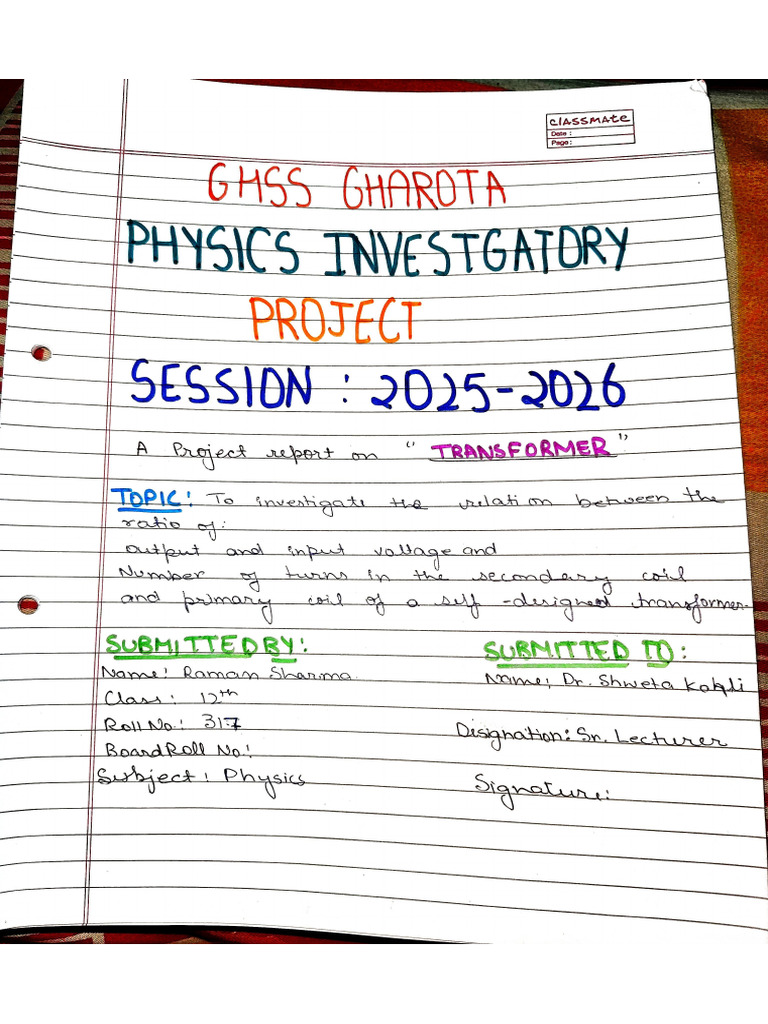 classmate
Date :
Page :
GHSS GHAROTA
PHYSICS INVESTGATORY
PROJECT
SESSION : 2025-2026
A Project report on "TRANSFORMER"
TOPIC: To investigate the relation between the
ratio of:
output and input voltage and
Number of turns in the secondary coil
and primary coil of a self-designed transformer.
SUBMITTED BY:
Name: Raman Sharma
Class: 12th
Roll No.: 317
Board Roll No.:
Subject: Physics
SUBMITTED TO:
Name: Dr. Shweta
Designation: Sr. Lecturer
Signature: